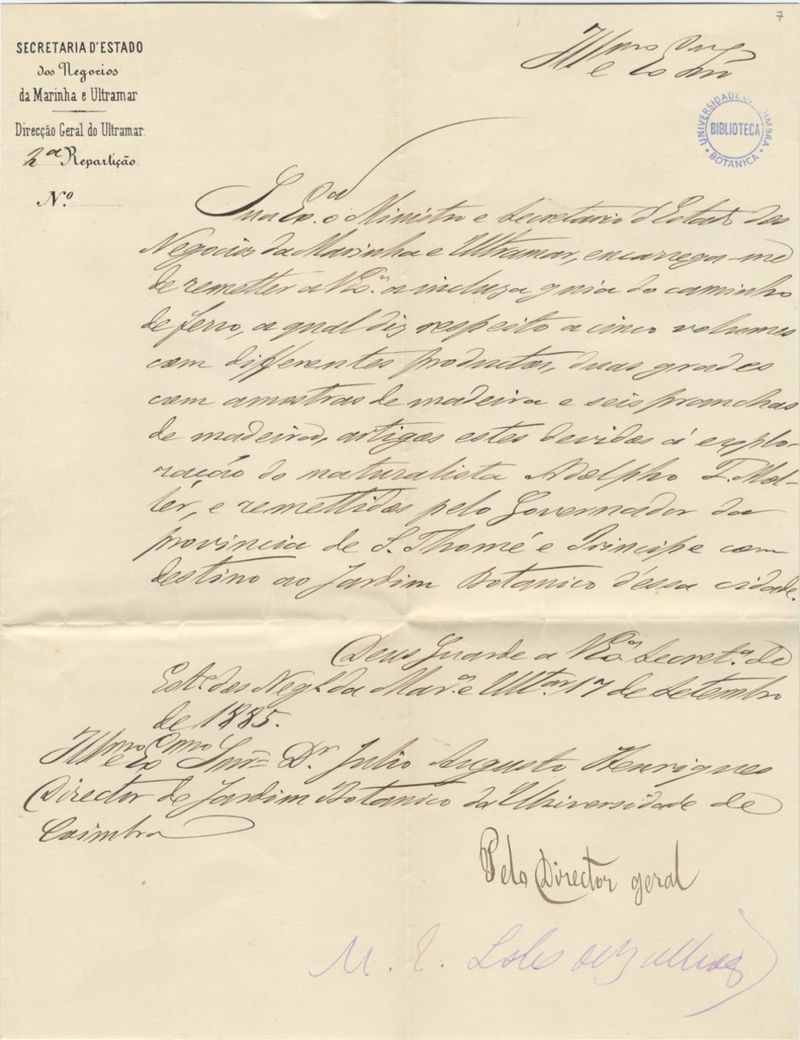 7
SECRETARIA D'ESTADO
dos Negocios
da Marinha e Ultramar
Direcção Geral do Ultramar
2ª Repartição
Nº
Illmo
e Exmo Snr
UNIVERSIDADE DE COIMBRA
BIBLIOTECA
BOTANICA
Sua Exª o Ministro e Secretario d'Estado dos
Negocios da Marinha e Ultramar, encarrega-me
de remetter a V Exª a incluza guia do caminho
de ferro, a qual diz respeito a cinco volumes
com differentes productos, duas grades
com amostras de madeira e seis pranchas
de madeira, artigos estes devidos á explo-
ração do naturalista Adolpho F. Mol-
ler, e remettidos pelo Governador da
provincia de S. Thomé e Principe com
destino ao Jardim Botanico d'essa cidade.
Deus Guarde a V Exª Secretª de
Estº dos Negº da Marª e Ultar 17 de Setembro
de 1885.
Illmo e Exmo Snr Dr Julio Augusto Henriques
Director do Jardim Botanico da Universidade de
Coimbra
Pelo Director geral
M. E.